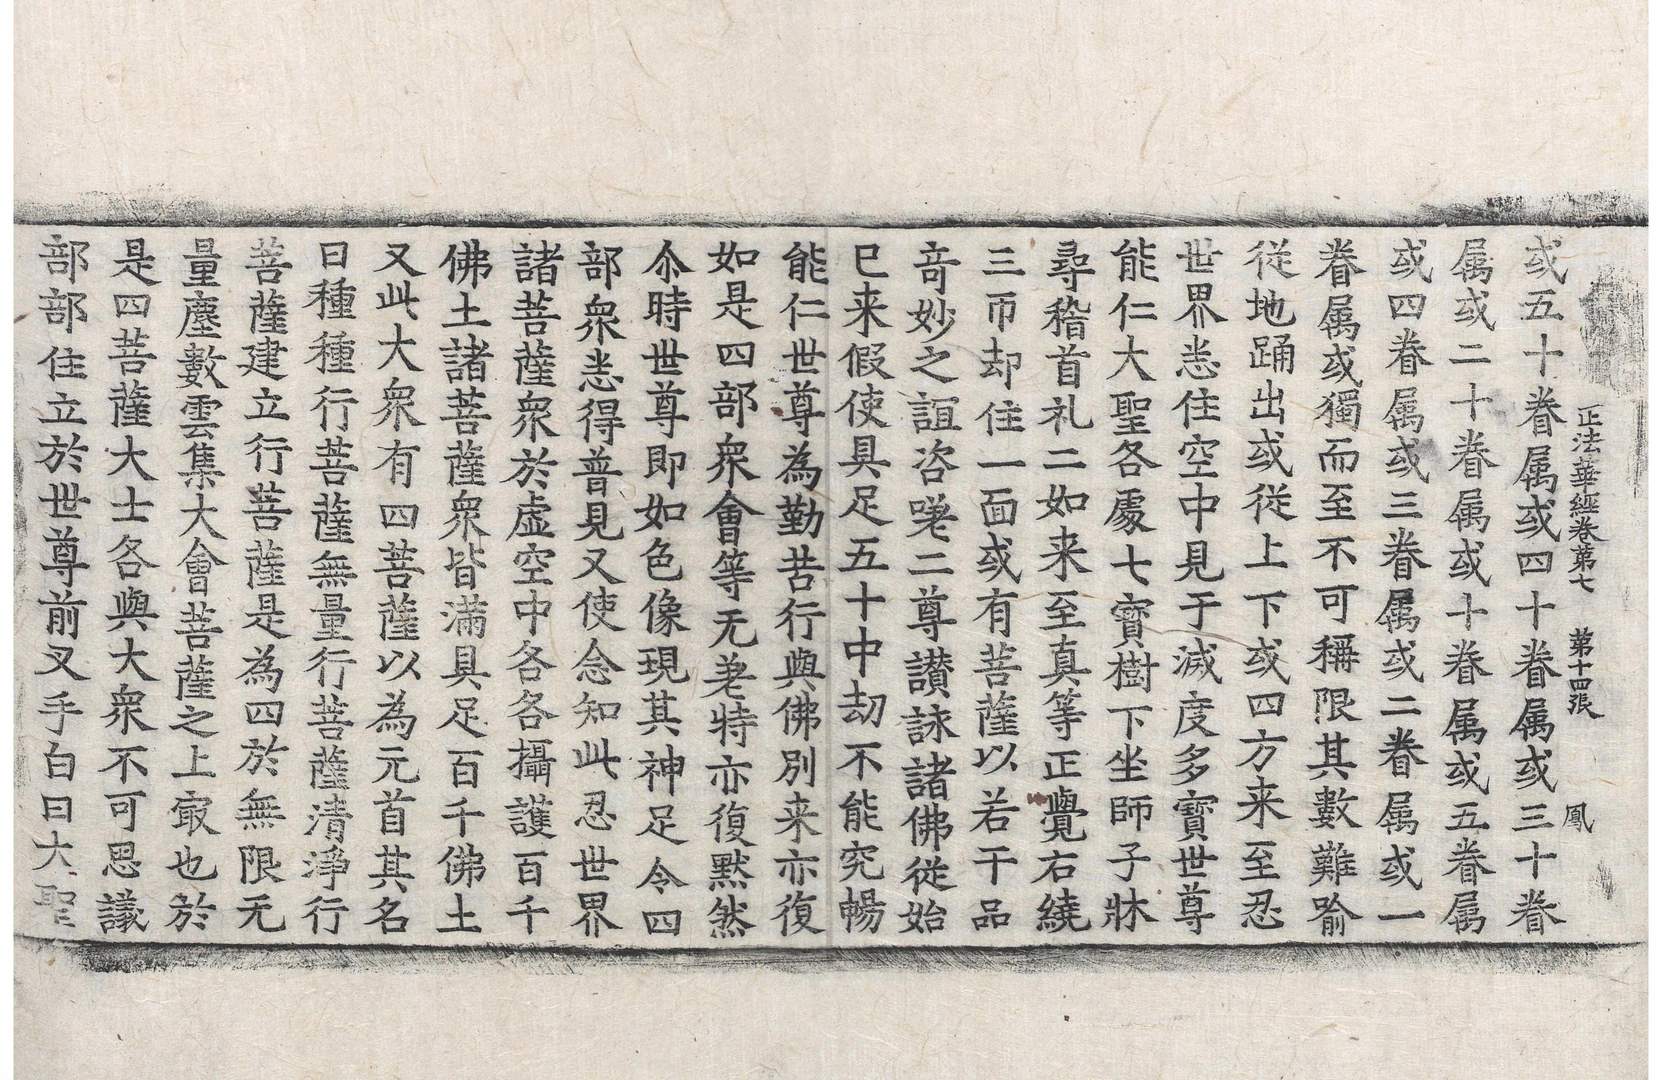 或五十眷属或四十眷属或三十眷
属或二十眷属或十眷属或五眷属
或四眷属或三眷属或二眷属或一
眷属或獨而至不可稱限其數難喻
従地踊出或従上下或四方来至忍
世界恙住空中見于滅度多寳世尊
能仁大聖各處七寳樹下坐師子牀
尋稽首礼二如来至真等正覺右繞
三帀却住一面或有菩薩以若干品
竒妙之誼咨嗟二尊讃詠諸佛従始
已来假使具足五十中劫不能究暢
能仁世尊為勤苦行與佛別来亦復
如是四部衆會等无差特亦復默然
尒時世尊即如色像現其神足令四
部衆恙得普見又使念知此忍世界
諸菩薩衆於虚空中各各攝護百千
佛土諸菩薩衆皆滿具足百千佛土
又此大衆有四菩薩以為元首其名
曰種種行菩薩無量行菩薩清淨行
菩薩建立行菩薩是為四於無限无
量塵數雲集大會菩薩之上㝡也於
是四菩薩大士各與大衆不可思議
部部住立於世尊前叉手白曰大聖
正法華經卷第七　第十四張　鳳